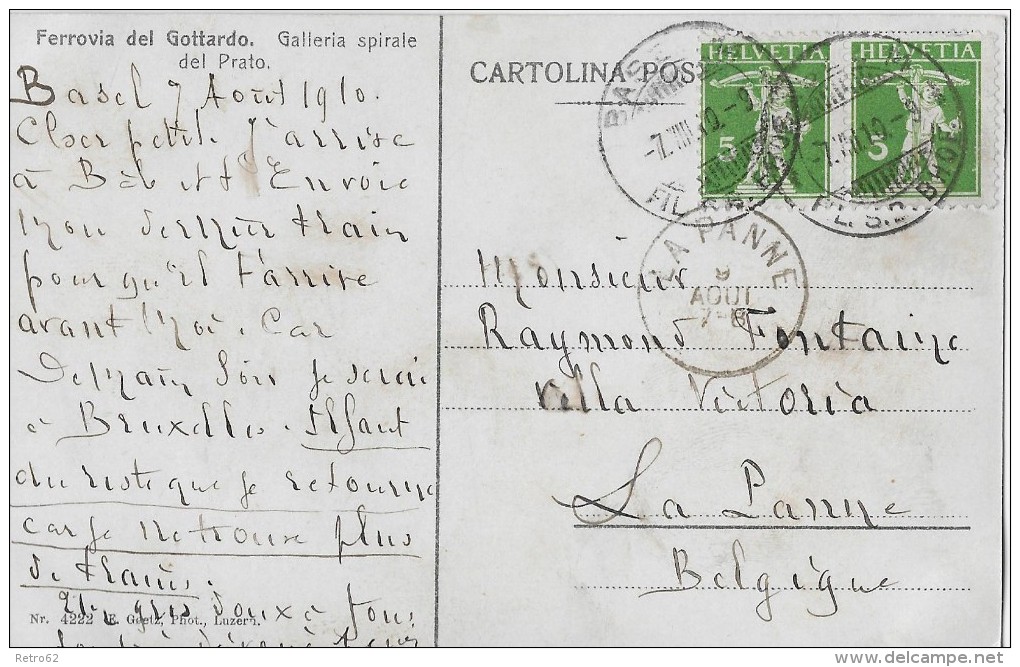 Ferrovia del Gottardo. Galleria spirale
del Prato.
CARTOLINA POS
HELVETIA
HELVETIA
5
5
Basel 7 Août 1910.
Cher petit. J'arrive
à Bâle et t'Envoie
mon dernier train
pour qu'il t'arrive
avant moi. Car
Demain soir je serai
à Bruxelles. Il faut
du reste que je retourne
car je ne trouve plus
de trains.
LA PANNE
9
AOUT
7-8
Monsieur
Raymond Fontaine
Villa Victoria
La Panne
Belgique
Nr. 4222 E. Goetz, Phot., Luzern.
Retro62
delcampe.net